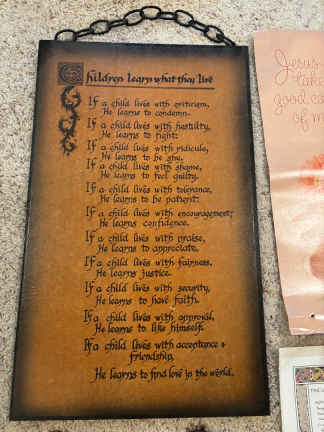 Children Learn what they live
If a child lives with criticism,
He learns to condemn.
If a child lives with hostility,
He learns to fight.
If a child lives with ridicule,
He learns to be shy.
If a child lives with shame,
He learns to feel guilty.
If a child lives with tolerance,
He learns to be patient.
If a child lives with encouragement,
He learns confidence.
If a child lives with praise,
He learns to appreciate.
If a child lives with fairness,
He learns justice.
If a child lives with security,
He learns to have faith.
If a child lives with approval,
He learns to like himself.
If a child lives with acceptance +
friendship,
He learns to find love in the world.
Jesus
take
good ca
of m